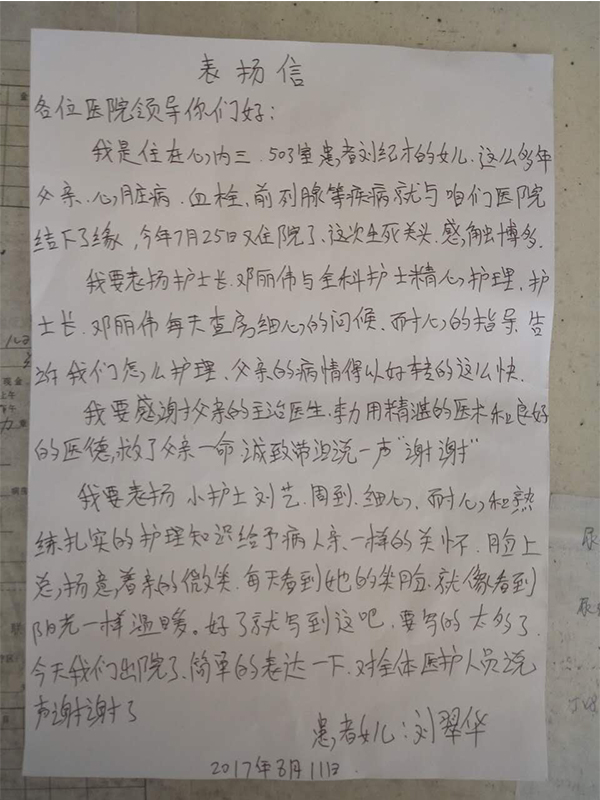 表扬信
各位医院领导你们好：
我是住在心内三.503室患者刘纪才的女儿.这么多年
父亲.心脏病.血栓.前列腺等疾病就与咱们医院
结下了缘，今年7月25日又住院了.这次生死关头.感触博多.
我要表扬护士长.邓丽伟与全科护士精心护理.护
士长.邓丽伟每天查房细心的问候、耐心的指导.告
诉我们怎么护理、父亲的病情得以好转的这么快.
我要感谢父亲的主治医生.李力用精湛的医术和良好
的医德,救了父亲一命诚致带泪说一声“谢谢”
我要表扬小护士刘艺.周到.细心、耐心和熟
练扎实的护理知识给予病人亲一样的关怀.脸上
总扬意着亲的微笑.每天看到她的笑脸.就像看到
阳光一样温暖。好了就写到这吧.要写的太多了.
今天我们出院了.简单的表达一下.对全体医护人员说
声谢谢了
患者女儿：刘翠华
2017年8月11日.